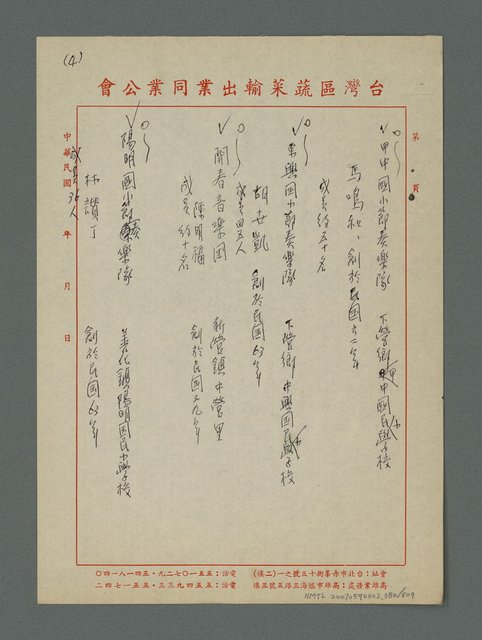 (4)
台灣區蔬菜輸出業同業公會
第 頁
甲中國小節奏樂隊 下營鄉甲中國民小學校
馬鳴 創於民國六二年
成員約五十名
東興國小節奏樂隊 下營鄉中興國民小學校
胡世凱 創於民國63年
成員四五人
開春音樂團 新營鎮中營里
陳明 創於民國五九年
成員約十名
陽明國小節奏樂隊 善化鎮陽明國民小學校
林讚丁 創於民國63年
成員36人
中華民國 年 月 日
會址：台北市赤峯街十三號之一(二樓) 電話：五五一〇七二九・五四一八一四〇
高雄業務處：高雄市旗海三路五號三樓 電話：五五四九三三・五一七二四二
NMTL 20070590002_380/509